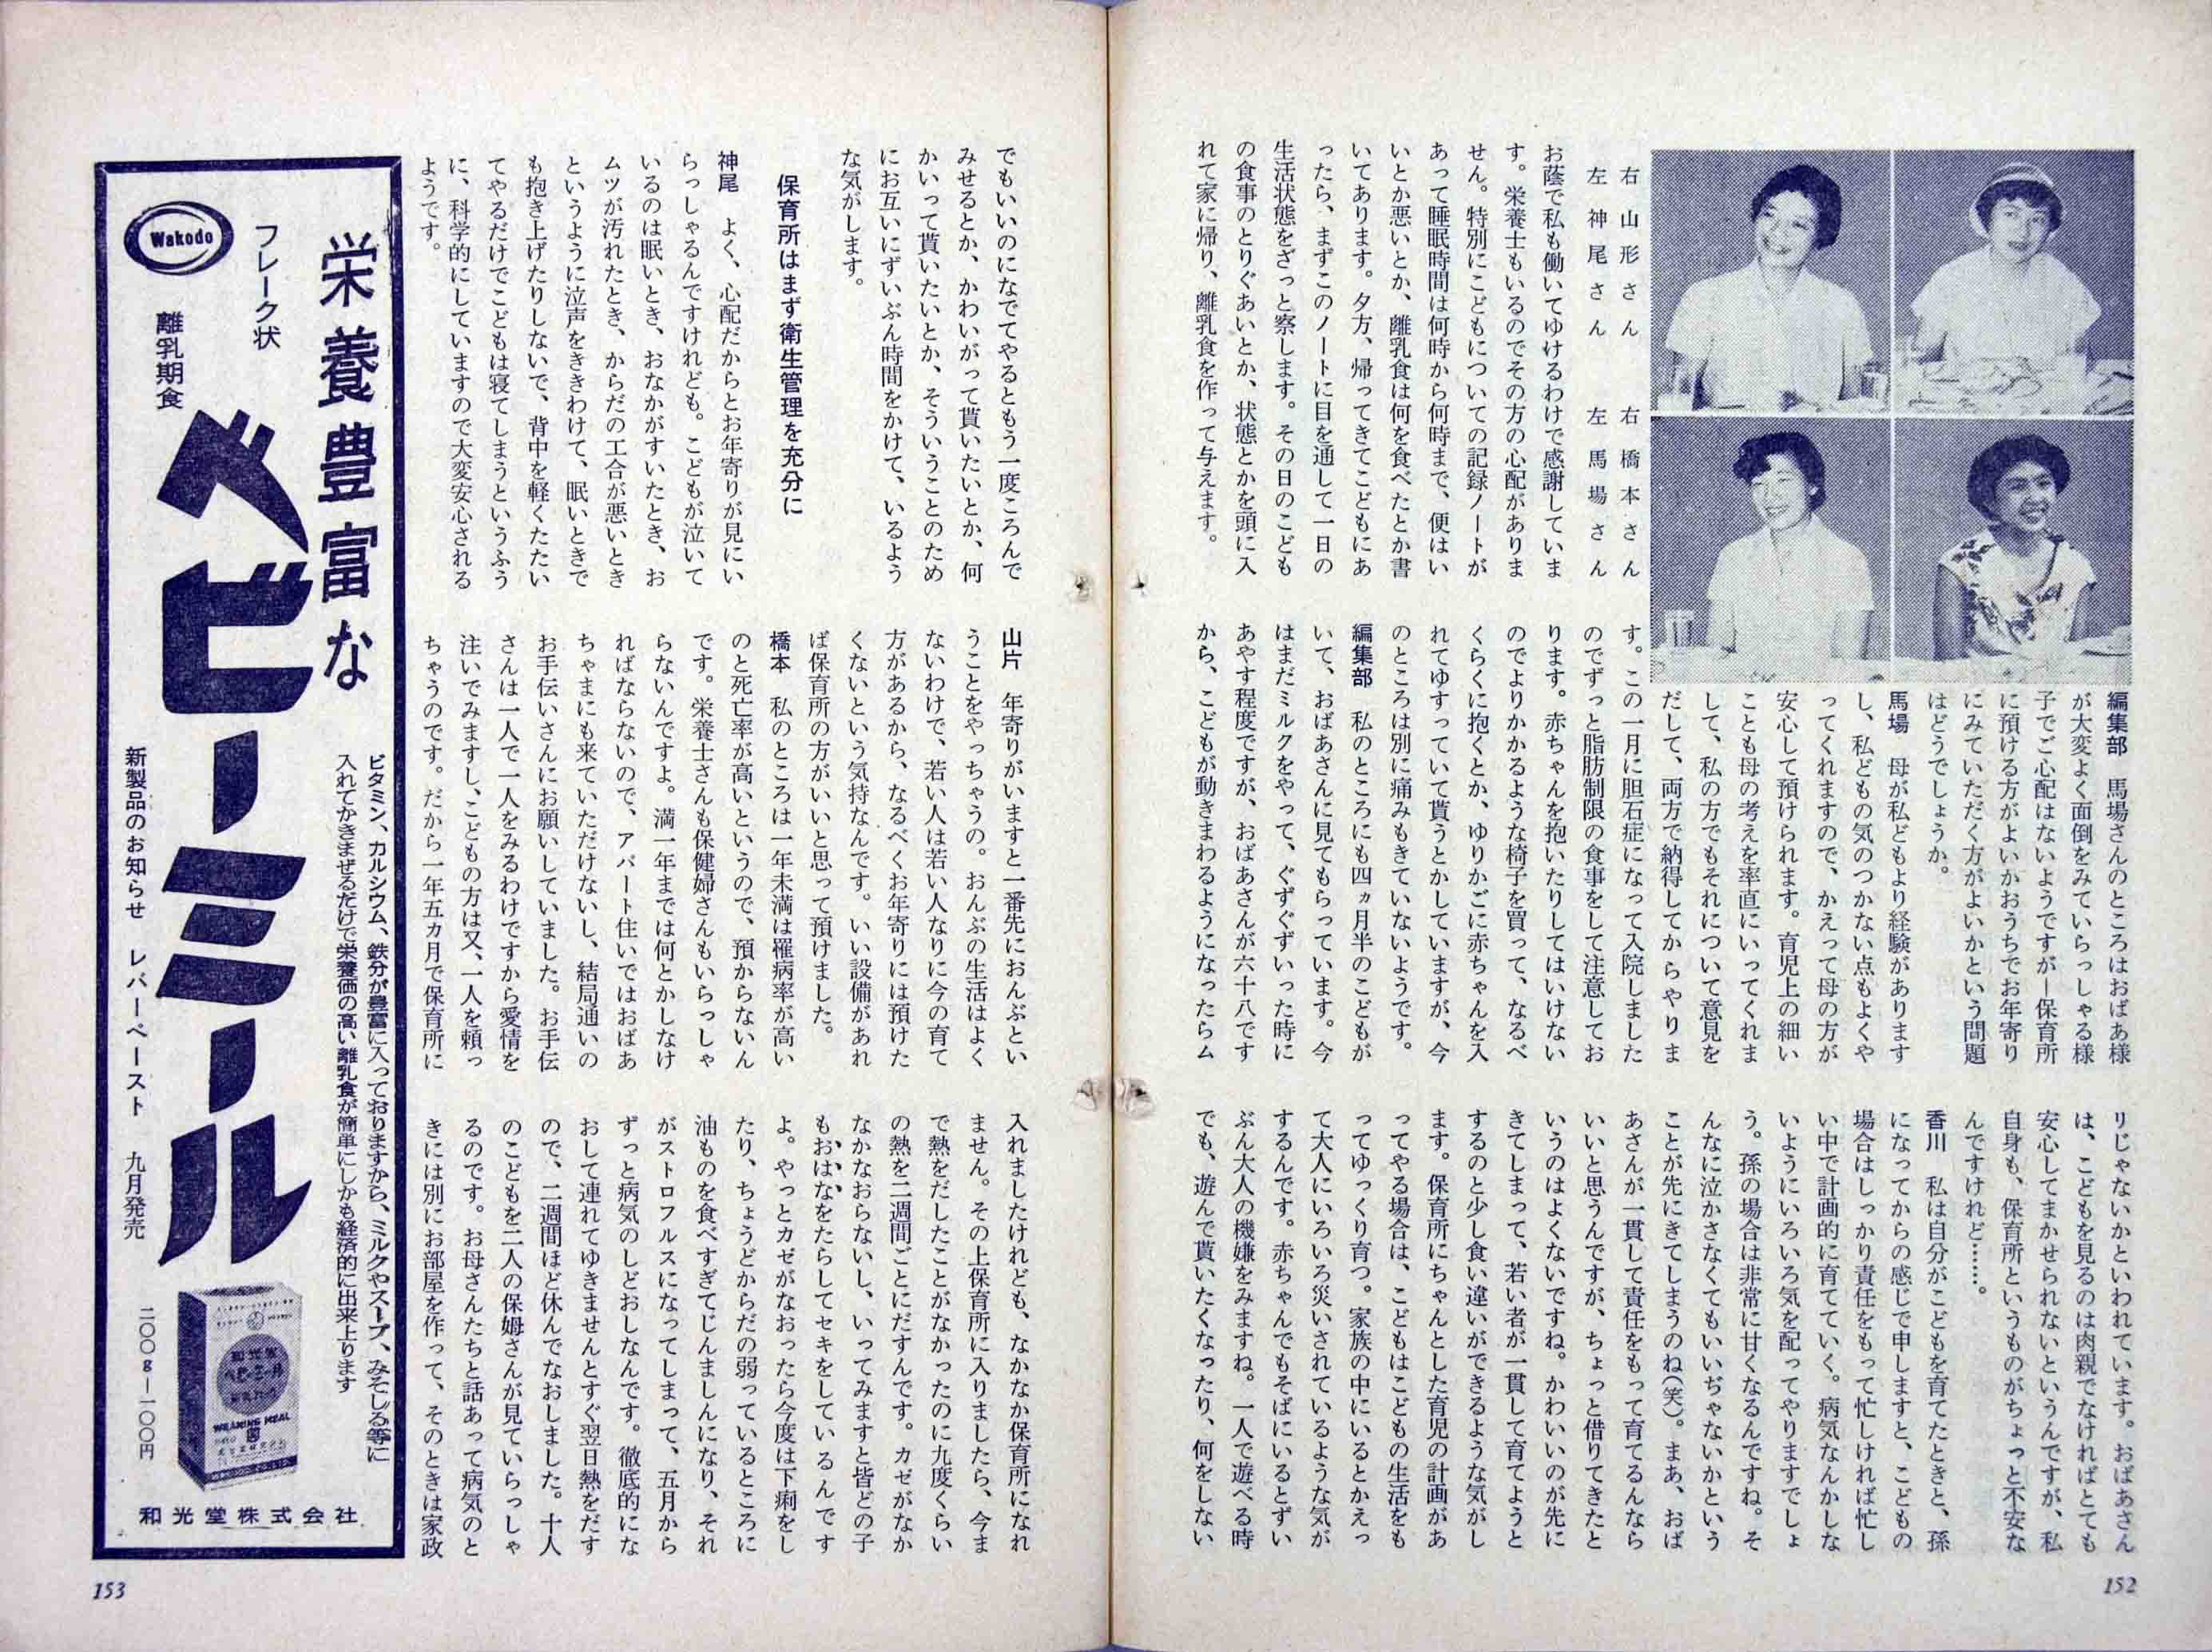 右 山形さん
左 神尾さん
右 橋本さん
左 馬場さん
お蔭で私も働いてゆけるわけで感謝していま
す。栄養士もいるのでその方の心配がありま
せん。特別にこどもについての記録ノートが
あって睡眠時間は何時から何時まで、便はい
いとか悪いとか、離乳食は何を食べたとか書
いてあります。夕方、帰ってきてこどもにあ
ったら、まずこのノートに目を通して一日の
生活状態をざっと察します。その日のこども
の食事のとりぐあいとか、状態とかを頭に入
れて家に帰り、離乳食を作って与えます。
編集部 馬場さんのところはおばあ様
が大変よく面倒をみていらっしゃる様
子でご心配はないようですが―保育所
に預ける方がよいかおうちでお年寄り
にみていただく方がよいかという問題
はどうでしょうか。
馬場 母が私どもより経験があります
し、私どもの気のつかない点もよくや
ってくれますので、かえって母の方が
安心して預けられます。育児上の細い
ことも母の考えを率直にいってくれま
して、私の方でもそれについて意見を
だして、両方で納得してからやりま
す。この一月に胆石症になって入院しました
のでずっと脂肪制限の食事をして注意してお
ります。赤ちゃんを抱いたりしてはいけない
のでよりかかるような椅子を買って、なるべ
くらくに抱くとか、ゆりかごに赤ちゃんを入
れてゆすっていて貰うとかしていますが、今
のところは別に痛みもきていないようです。
編集部 私のところにも四ヵ月半のこどもが
いて、おばあさんに見てもらっています。今
はまだミルクをやって、ぐずぐずいった時に
あやす程度ですが、おばあさんが六十八です
から、こどもが動きまわるようになったらム
リじゃないかといわれています。おばあさん
は、こどもを見るのは肉親でなければとても
安心してまかせられないというんですが、私
自身も、保育所というものがちょっと不安な
んですけれど……。
香川 私は自分がこどもを育てたときと、孫
になってからの感じで申しますと、こどもの
場合はしっかり責任をもって忙しければ忙し
い中で計画的に育てていく。病気なんかしな
いようにいろいろ気を配ってやりますでしょ
う。孫の場合は非常に甘くなるんですね。そ
んなに泣かさなくてもいいぢゃないかという
ことが先にきてしまうのね(笑)。まあ、おば
あさんが一貫して責任をもって育てるんなら
いいと思うんですが、ちょっと借りてきたと
いうのはよくないですね。かわいいのが先に
きてしまって、若い者が一貫して育てようと
するのと少し食い違いができるような気がし
ます。保育所にちゃんとした育児の計画があ
ってやる場合は、こどもはこどもの生活をも
ってゆっくり育つ。家族の中にいるとかえっ
て大人にいろいろ災いされているような気が
するんです。赤ちゃんでもそばにいるとずい
ぶん大人の機嫌をみますね。一人で遊べる時
でも、遊んで貰いたくなったり、何をしない
152
でもいいのになでてやるともう一度ころんで
みせるとか、かわいがって貰いたいとか、何
かいって貰いたいとか、そういうことのため
にお互いにずいぶん時間をかけて、いるよう
な気がします。
保育所はまず衛生管理を充分に
神尾 よく、心配だからとお年寄りが見にい
らっしゃるんですけれども。こどもが泣いて
いるのは眠いとき、おなかがすいたとき、お
ムツが汚れたとき、からだの工合が悪いとき
というように泣声をききわけて、眠いときで
も抱き上げたりしないで、背中を軽くたたい
てやるだけでこどもは寝てしまうというふう
に、科学的にしていますので大変安心される
ようです。
山片 年寄りがいますと一番先におんぶとい
うことをやっちゃうの。おんぶの生活はよく
ないわけで、若い人は若い人なりに今の育て
方があるから、なるべくお年寄りには預けた
くないという気持なんです。いい設備があれ
ば保育所の方がいいと思って預けました。
橋本 私のところは一年未満は罹病率が高い
のと死亡率が高いというので、預からないん
です。栄養士さんも保健婦さんもいらっしゃ
らないんですよ。満一年までは何とかしなけ
ればならないので、アパート住いではおばあ
ちゃまにも来ていただけないし、結局通いの
お手伝いさんにお願いしていました。お手伝
さんは一人で一人をみるわけですから愛情を
注いでみますし、こどもの方は又、一人を頼っ
ちゃうのです。だから一年五カ月で保育所に
入れましたけれども、なかなか保育所になれ
ません。その上保育所に入りましたら、今ま
で熱をだしたことがなかったのに九度くらい
の熱を二週間ごとにだすんです。カゼがなか
なかなおらないし、いってみますと皆どの子
もおはなをたらしてセキをしているんです
よ。やっとカゼがなおったら今度は下痢をし
たり、ちょうどからだの弱っているところに
油ものを食べすぎてじんましんになり、それ
がストロフルスになってしまって、五月から
ずっと病気のしどおしなんです。徹底的にな
おして連れてゆきませんとすぐ翌日熱をだす
ので、二週間ほど休んでなおしました。十人
のこどもを二人の保姆さんが見ていらっしゃ
るのです。お母さんたちと話あって病気のと
きには別にお部屋を作って、そのときは家政
栄養豊富な
ビタミン、カルシウム、鉄分が豊富に入っておりますから、ミルクやスープ、みそしる等に
入れてかきまぜるだけで栄養価の高い離乳食が簡単にしかも経済的に出来上ります
フレーク状
離乳期食
Wakodo
ベビーミール
新製品のお知らせ レバーペースト 九月発売
WEANING MEAL
二〇〇g―一〇〇円
和光堂株式会社
153